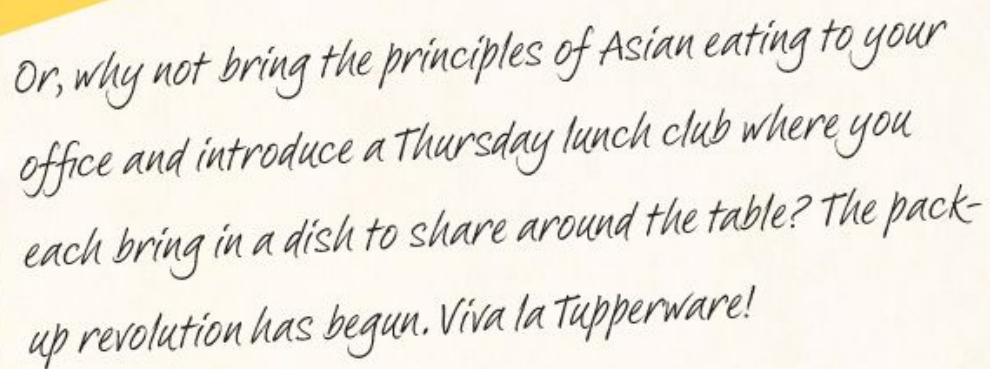 Or, why not bring the principles of Asian eating to your
office and introduce a Thursday lunch club where you
each bring in a dish to share around the table? The pack-
up revolution has begun. Viva la Tupperware!